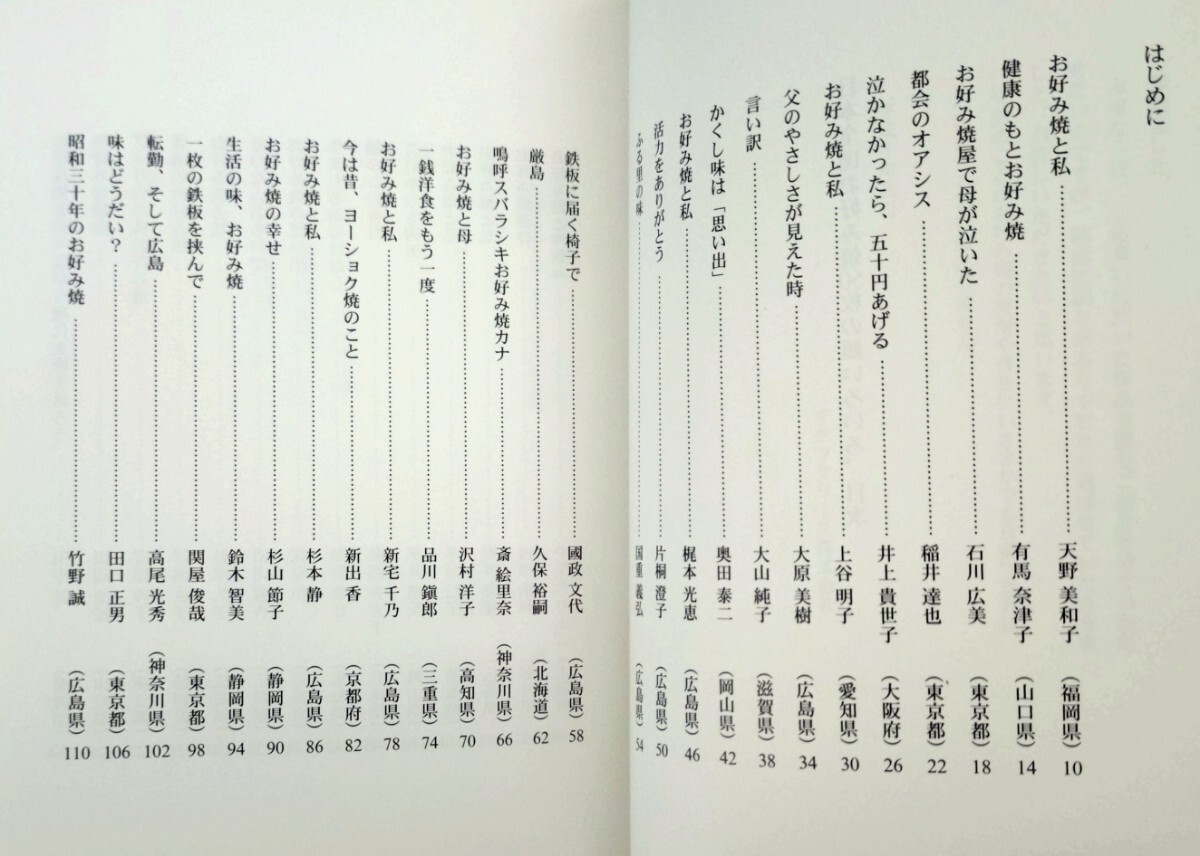 はじめに
お好み焼と私……天野 美和子 (福岡県) 10
健康のもとお好み焼……有馬 奈津子 (山口県) 14
お好み焼屋で母が泣いた……石川 広美 (東京都) 18
都会のオアシス……稲井 達也 (東京都) 22
泣かなかったら、五十円あげる……井上 貴世子 (大阪府) 26
お好み焼と私……上谷 明子 (愛知県) 30
父のやさしさが見えた時……大原 美樹 (広島県) 34
言い訳……大山 純子 (滋賀県) 38
かくし味は「思い出」……奥田 泰二 (岡山県) 42
お好み焼と私……梶本 光恵 (広島県) 46
活力をありがとう……片桐 澄子 (広島県) 50
ふる里の味……国重 義弘 (広島県) 54
鉄板に届く椅子で……國政 文代 (広島県) 58
厳島……久保 裕嗣 (北海道) 62
嗚呼スバラシキお好み焼カナ……斎 絵里奈 (神奈川県) 66
お好み焼と母……沢村 洋子 (高知県) 70
一銭洋食をもう一度……品川 鎭郎 (三重県) 74
お好み焼と私……新宅 千乃 (広島県) 78
今は昔、ヨーショク焼のこと……新出 香 (京都府) 82
お好み焼と私……杉本 静 (広島県) 86
お好み焼の幸せ……杉山 節子 (静岡県) 90
生活の味、お好み焼……鈴木 智美 (静岡県) 94
一枚の鉄板を挟んで……関屋 俊哉 (東京都) 98
転勤、そして広島……高尾 光秀 (神奈川県) 102
味はどうだい？……田口 正男 (東京都) 106
昭和三十年のお好み焼……竹野 誠 (広島県) 110